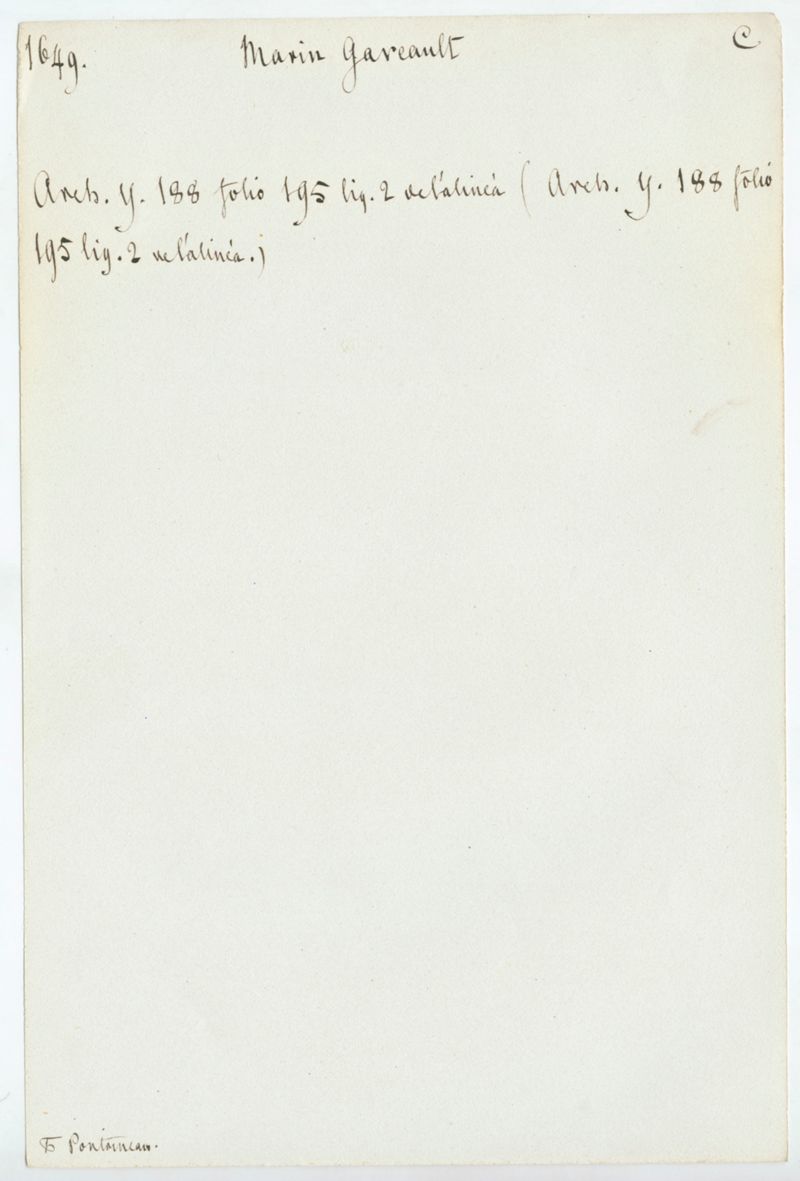 1649. Marin Gaveault C
Arch. Y. 188 folio 195 lig. 2 de l'alinéa ( Arch. Y. 188 folio
195 lig. 2 de l'alinéa.)